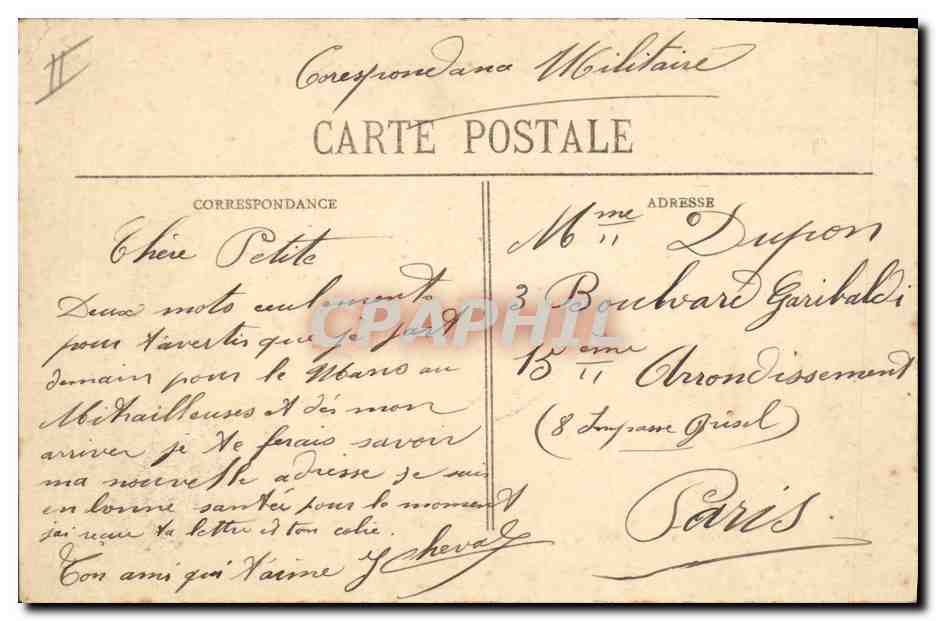 II
Corespondance Militaire
CARTE POSTALE
CORRESPONDANCE
Chère Petite
Deux mots ceulements
pour t'avertis que je part
demain pour le Mans au
Mitrailleuses et dés mon
arriver je te ferais savoir
ma nouvelle adresse je suis
en bonne santée pour le moment
jai recue ta lettre et ton colie.
Ton ami qui t'aime J Cheval
ADRESSE
Mme Dupon
3 Boulvard Garibaldi
15eme Arrondissement
(8 Impasse Grisel)
Paris.
CPAPHIL